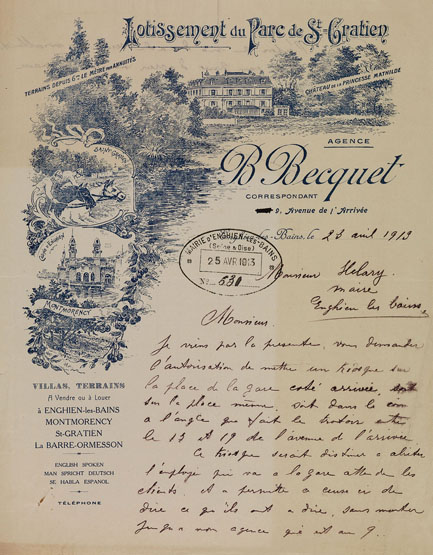 Lotissement du Parc de St-Gratien
TERRAINS DEPUIS 6frs LE MÈTRE PAR ANNUITÉS
CHÂTEAU DE LA PRINCESSE MATHILDE
AGENCE
B. Becquet
CORRESPONDANT
9, Avenue de l'Arrivée
-Bains, le 25 avril 1913
MAIRIE D'ENGHIEN-LES-BAINS
(Seine & Oise)
25 AVR 1913
No 530
SAINT-GRATIEN
MONTMORENCY
Monsieur Helary
maire
Enghien les bains
Monsieur
Je viens par la presente, vous demander
l'autorisation de mettre un kiosque sur
la place de la gare coté arrivée soit
sur la place même, soit dans le
a l'angle que fait le trottoir entre
le 13 et 19 de l'avenue de l'arrivée
Ce kiosque serait destiné a abriter
l'employé qui va a la gare attendre les
clients. et a permettre a ceux ci de
dire ce qu'ils ont a dire, sans monter
jusqu'a mon agence qui est au 9.
VILLAS, TERRAINS
A Vendre ou à Louer
à ENGHIEN-les-BAINS
MONTMORENCY
St-GRATIEN
La BARRE-ORMESSON
ENGLISH SPOKEN
MAN SPRICHT DEUTSCH
SE HABLA ESPANOL
TÉLÉPHONE